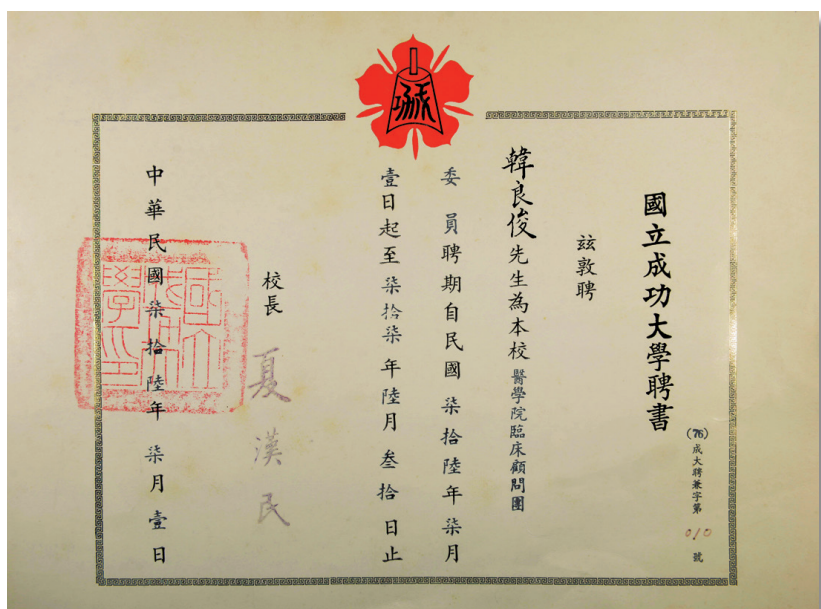 國立成功大學聘書
(76)成大聘兼字第010號
玆敦聘
韓良俊先生為本校醫學院臨床顧問團
委員聘期自民國柒拾陸年柒月
壹日起至柒拾柒年陸月叁拾日止
校長 夏漢民
中華民國柒拾陸年柒月壹日
國立成功大學印